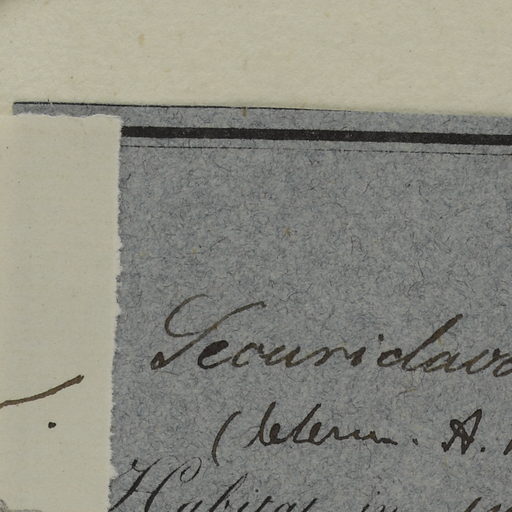 Securidaca
(determ. A.
Habitat in